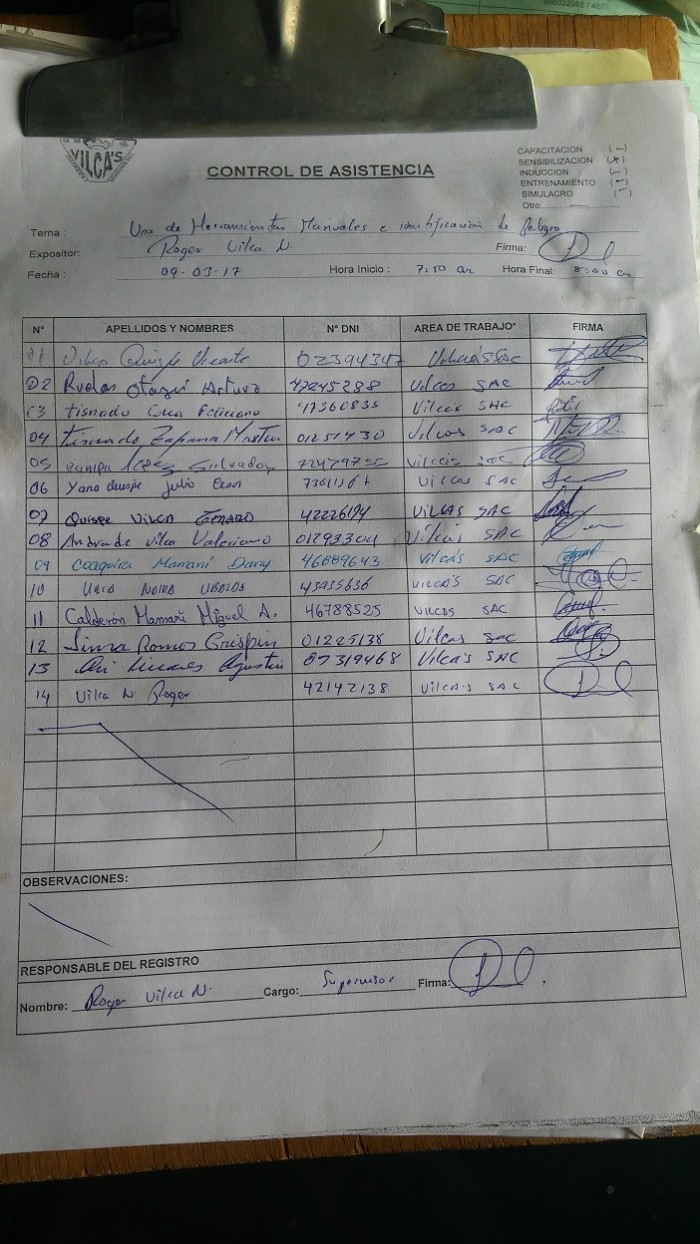 VILCA'S
CONTROL DE ASISTENCIA
CAPACITACION ( )
SENSIBILIZACION (x)
INDUCCION ( )
ENTRENAMIENTO ( )
SIMULACRO ( )
Otro:
Tema : Uso de Herramientas Manuales e identificacion de Peligro
Expositor: Roger Vilca N. Firma:
Fecha : 09-03-17 Hora Inicio : 7:50 am Hora Final: 8:00 am
N° APELLIDOS Y NOMBRES N° DNI AREA DE TRABAJO* FIRMA
01 Vilca Quispe Vicente 02394347 Vilca's SAC
02 Rodas Otazu Arturo 47245288 Vilcas SAC
03 Tisnado Feliciano 47360835 Vilca's SAC
04 Tisnado Zapana Martin 01251430 Vilcas SAC
05 Salvador Vilca's SAC
06 Yana Quispe Julio Cesar Vilcas SAC
07 Quispe Vilca Genaro 42226194 VILCAS SAC
08 Andrade Vilca Valeriano 01293304 Vilca's SAC
09 Coaquira Mamani Dany 46889643 Vilca's SAC
10 43935636 VILCA'S SAC
11 Calderón Mamani Miguel A. 46788525 VILCAS SAC
12 Ramos Crispin 01225138 Vilcas Sac
13 Linares Agustin Vilca's SAC
14 Vilca N. Roger 42142138 Vilca's SAC
OBSERVACIONES:
RESPONSABLE DEL REGISTRO
Nombre: Roger Vilca N. Cargo: Supervisor Firma: